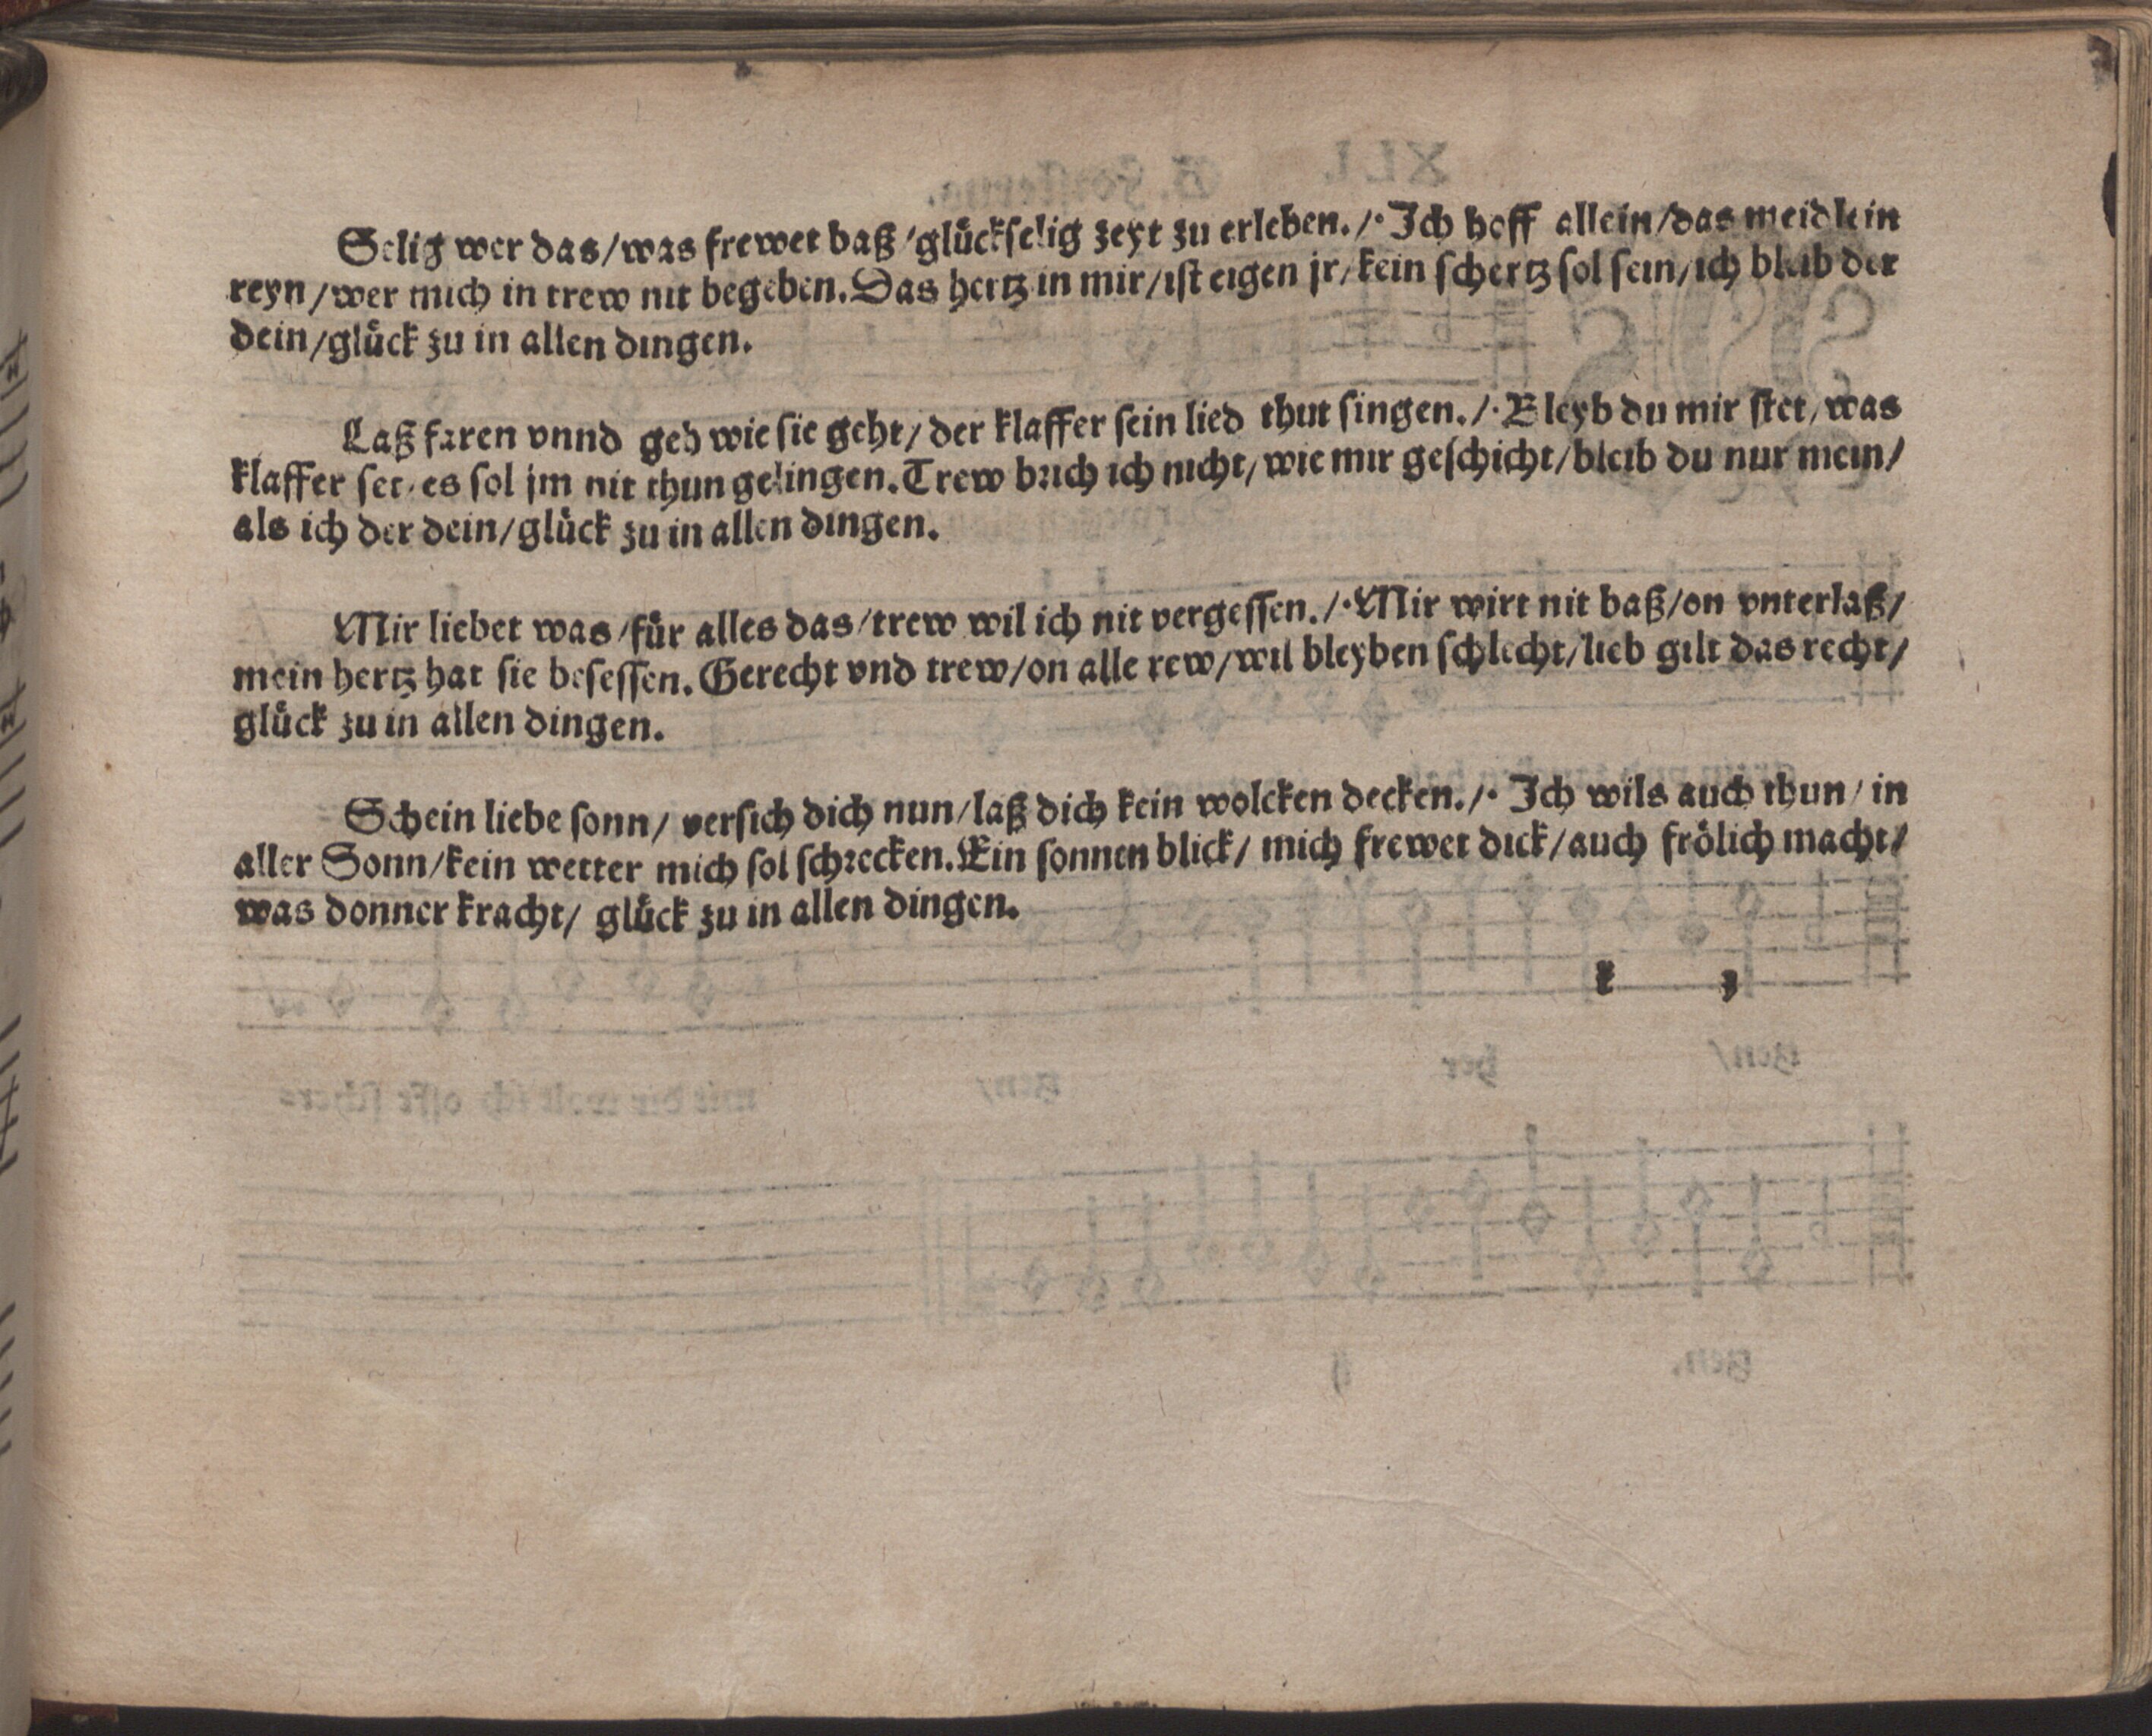 Selig wer das/was frewet baß/glückselig zeyt zu erleben./. Ich hoff allein/das meidlein
reyn/wer mich in trew nit begeben. Das hertz in mir/ist eigen jr/kein schertz sol sein/ich bleib der
dein/glück zu in allen dingen.
Laß faren vnnd geh wie sie geht/der klaffer sein lied thut singen./. Bleyb du mir stet/was
klaffer set/es sol jm nit thun gelingen. Trew brich ich nicht/wie mir geschicht/bleib du nur mein/
als ich der dein/glück zu in allen dingen.
Mir liebet was/für alles das/trew wil ich nit vergessen./. Mir wirt nit baß/on vnterlaß/
mein hertz hat sie besessen. Gerecht vnd trew/on alle rew/wil bleyben schlecht/lieb gilt das recht/
glück zu in allen dingen.
Schein liebe sonn/versich dich nun/laß dich kein wolcken decken./. Ich wils auch thun/in
aller Sonn/kein wetter mich sol schrecken. Ein sonnen blick/mich frewet dick/auch frölich macht/
was donner kracht/glück zu in allen dingen.
k 3